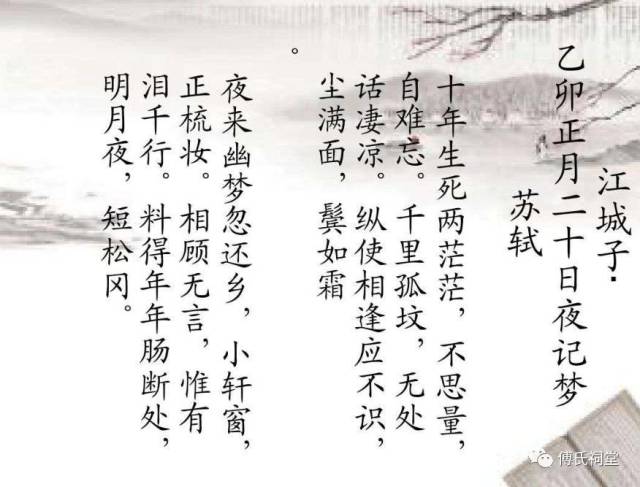 江城子：
乙卯正月二十日夜记梦
苏轼
十年生死两茫茫，不思量，
自难忘。千里孤坟，无处
话凄凉。纵使相逢应不识，
尘满面，鬓如霜
。
夜来幽梦忽还乡，小轩窗，
正梳妆。相顾无言，惟有
泪千行。料得年年肠断处，
明月夜，短松冈。
傅氏祠堂